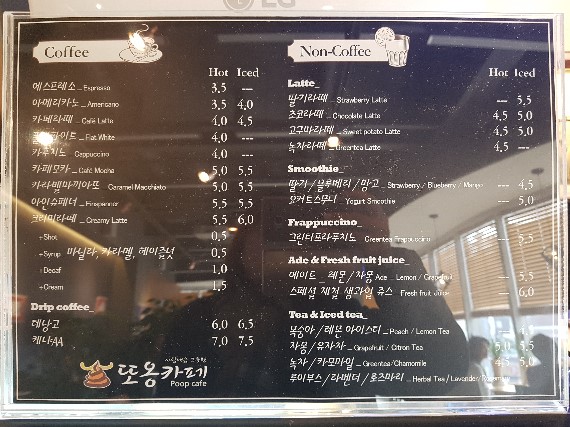 LG
Coffee
Hot Iced
에스프레소 Espresso 3,5 ---
아메리카노 Americano 3,5 4,0
카페라떼 Café Latte 4,0 4,5
Flat White 4,0 ---
카푸치노 Cappuccino 4,0 ---
카페모카 Café Mocha 5,0 5,5
카라멜마끼아또 Caramel Macchiato 5,5 5,5
아인슈페너 Einspanner 5,5 5,5
크리미라떼 Creamy Latte 5,5 6,0
+Shot 0,5
+Syrup 바닐라, 카라멜, 헤이즐넛 0,5
+Decaf 1,0
+Cream 1,5
Drip coffee
6,0 6,5
케냐AA 7,0 7,5
또옹카페
Poop cafe
Non-Coffee
Hot Iced
Latte
딸기라떼 Strawberry Latte --- 5,5
초코라떼 Chocolate Latte 4,5 5,0
고구마라떼 Sweet potato Latte 4,5 5,0
녹차라떼 Greentea Latte 4,5
Smoothie
딸기/블루베리/망고 Strawberry / Blueberry / Mango --- 4,5
요거트스무디 Yogurt Smoothie 5,0
Frappuccino
그린티프라푸치노 Greentea Frappuccino 5,5
Ade & Fresh fruit juice
에이드 레몬/자몽 Ade Lemon / Grapefruit 5,5
스페셜 제철 생과일 쥬스 Fresh fruit Juice 6,0
Tea & Iced tea
복숭아/레몬 아이스티 Peach / Lemon Tea
자몽/유자차 Grapefruit / Citron Tea 5,0 5,5
녹차/카모마일 Greentea/Chamomile 4,5 5,0
루이보스/라벤더/로즈마리 Herbal Tea / Lavender/ Rosemary